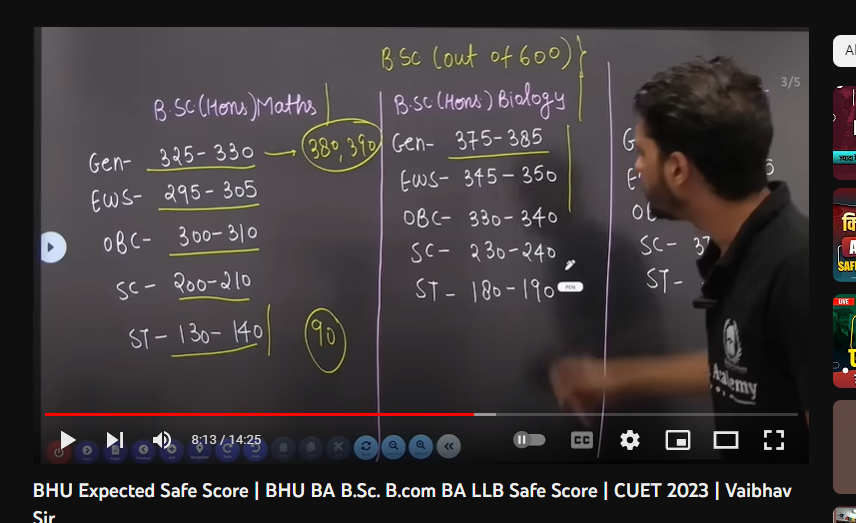 B.SC (out of 600)
3/5
B.SC(Hons)Maths
Gen- 325-330 → 380,390
EWS- 295-305
OBC- 300-310
SC- 200-210
ST-130-140
90
B.SC(Hons) Biology
Gen- 375-385
EWS- 345-350
OBC- 330-340
SC- 230-240
ST- 180-190
SC- 37
ST-
PEN
Academy
8:13 / 14:25
CC
BHU Expected Safe Score | BHU BA B.Sc. B.com BA LLB Safe Score | CUET 2023 | Vaibhav
Sir
LIVE